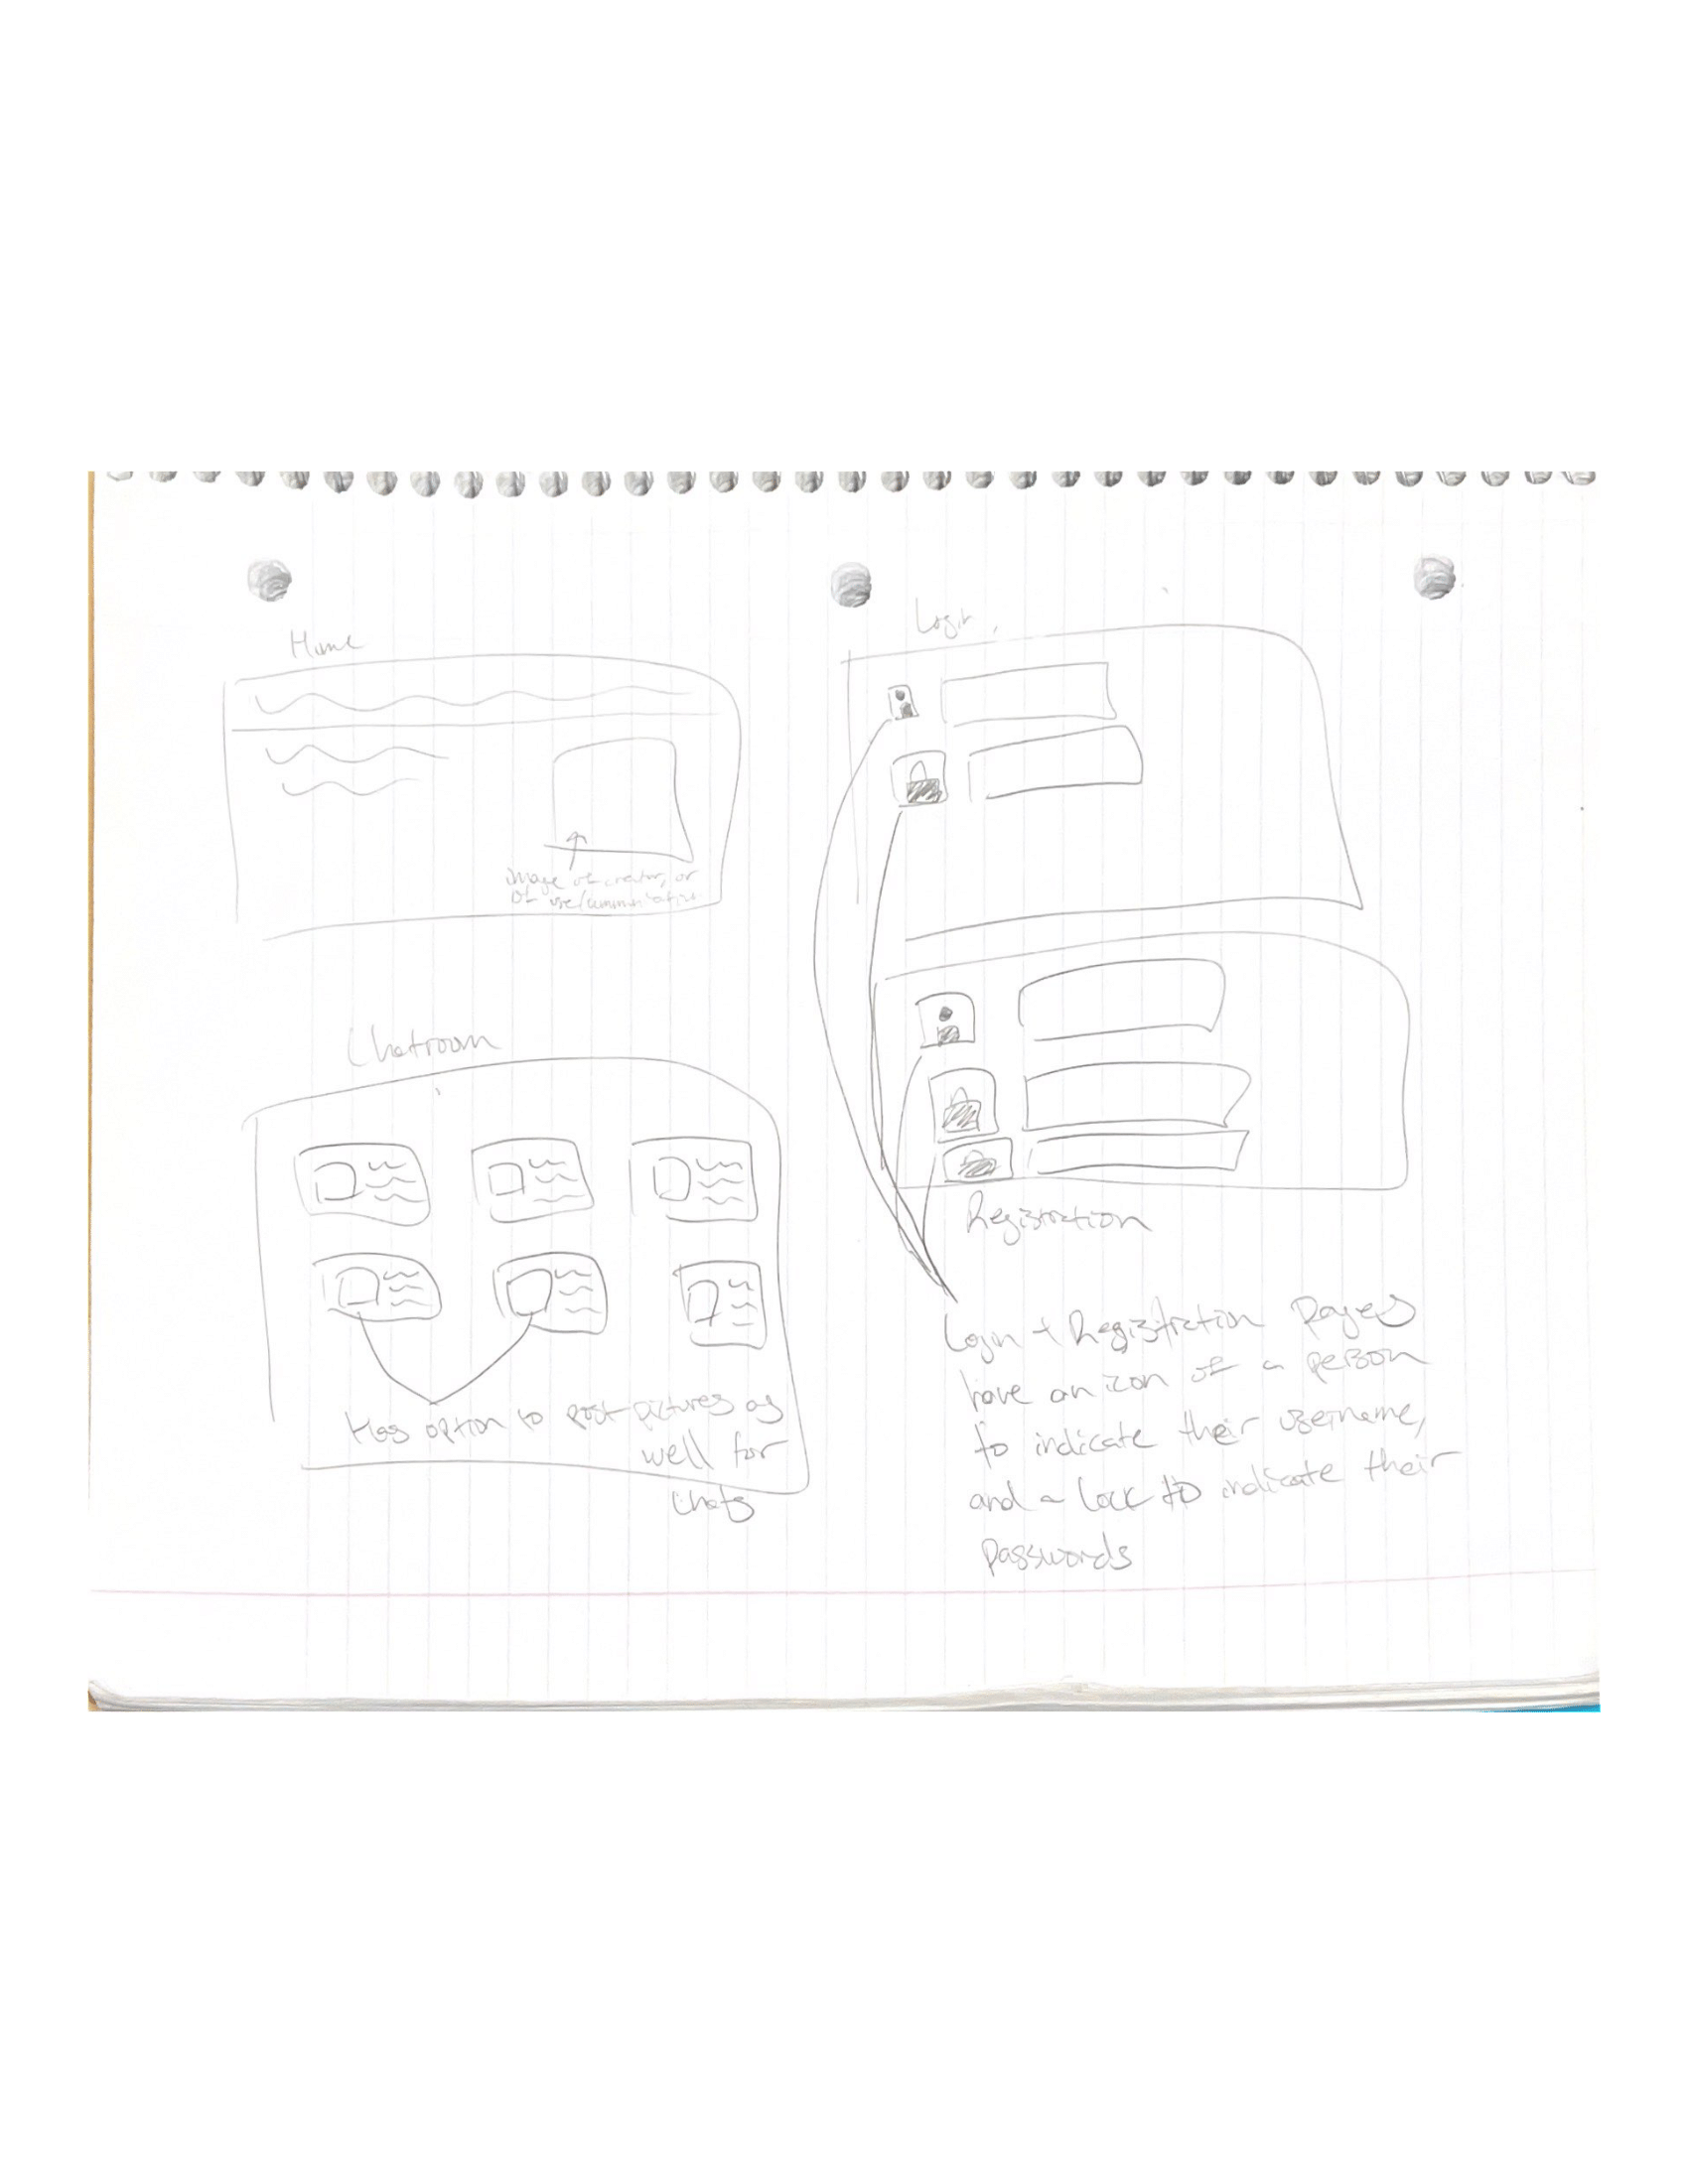 Home
image of creator, or
of use/communication
Login
Chatroom
Has option to post pictures as
well for
chats
Registration
Login + Registration pages
have an icon of a person
to indicate their username,
and a lock to indicate their
passwords